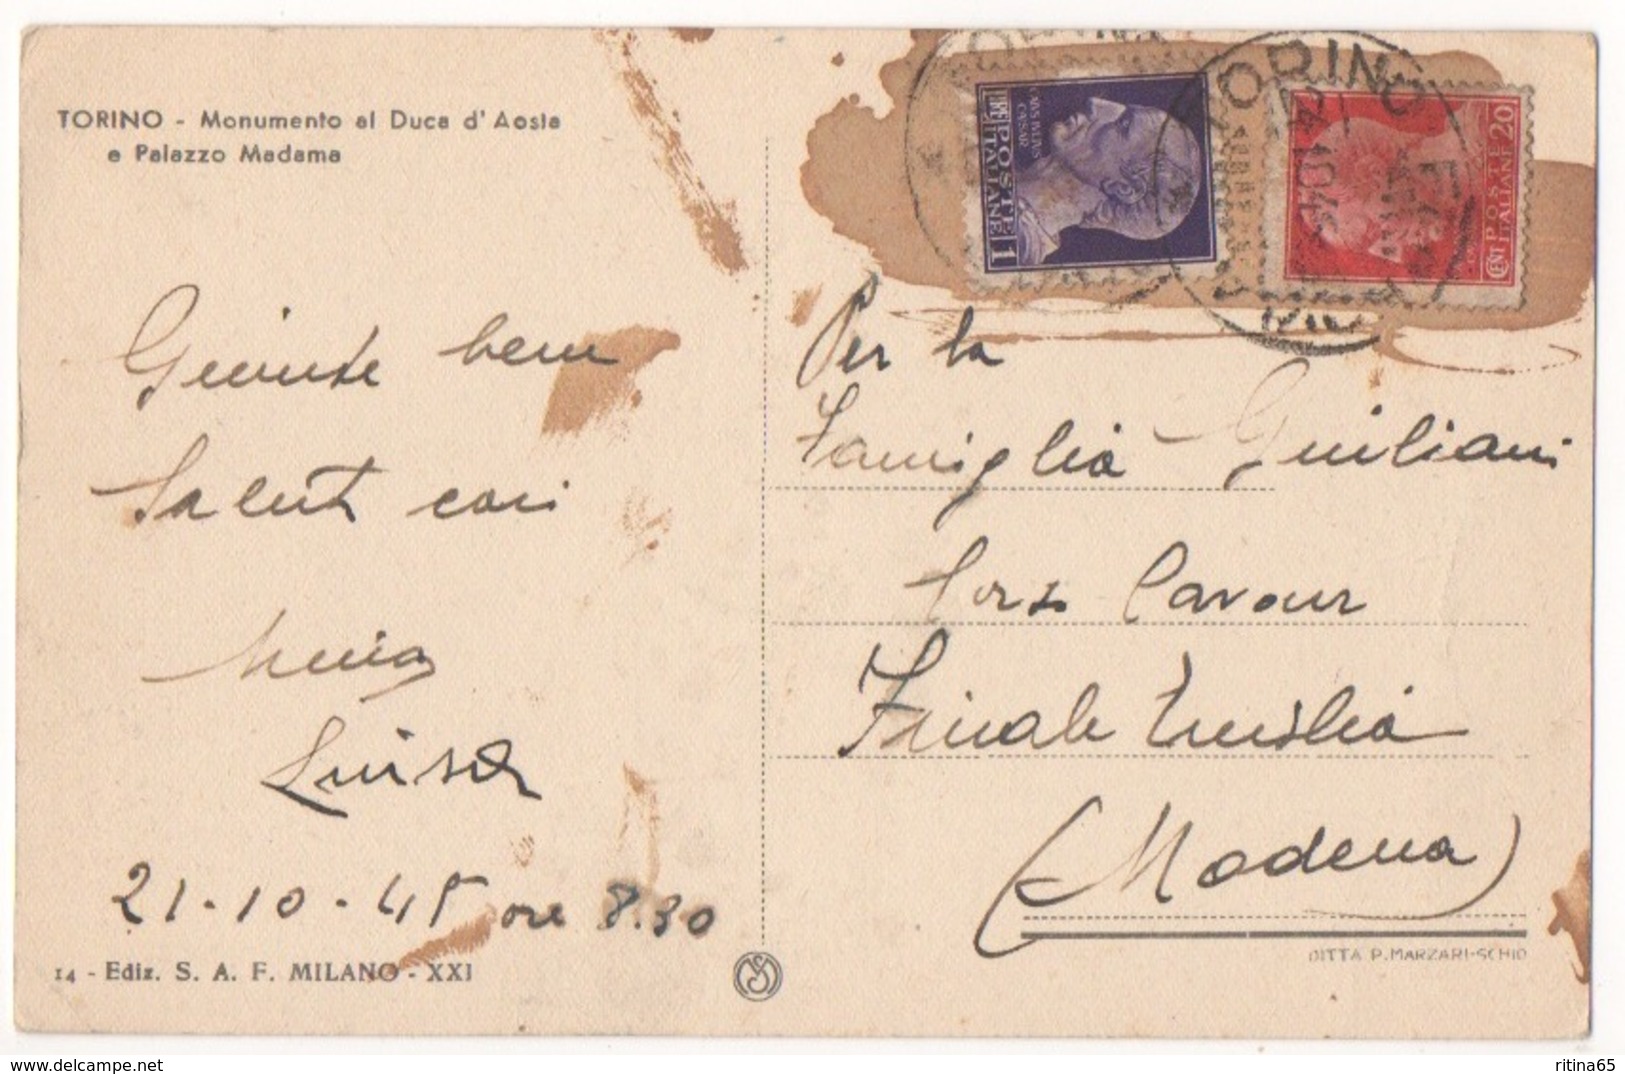 TORINO - Monumento al Duca d'Aosta
e Palazzo Madama
bene
Saluti cari
Luisa
21-10-45 ore 8.30
14 - Ediz. S. A. F. MILANO - XXI
CAIVS IVLIVS
CAESAR
POSTE
ITALIANE
1
TORINO
POSTE
ITALIANE
CENT 20
Per la
Famiglia Giuliani
Corso Cavour
Finale Emilia
(Modena)
DITTA P. MARZARI-SCHIO
delcampe.net
ritina65